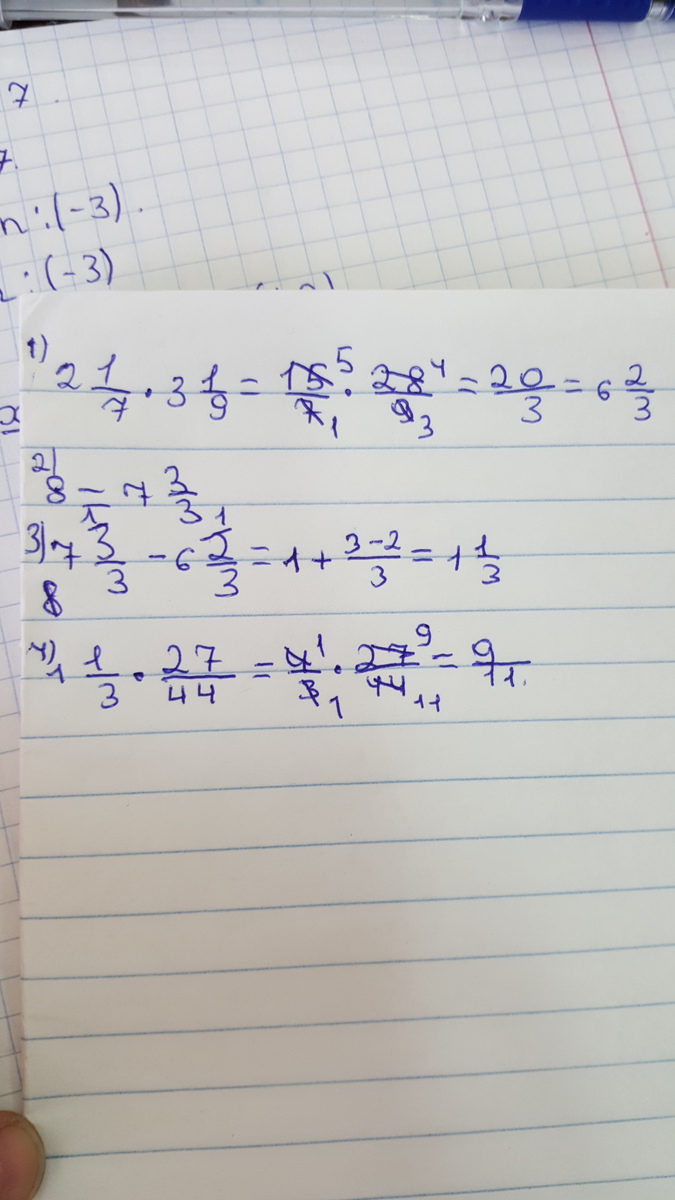 7.
7.
n:(-3).
:(-3)
1) 2 1/7 · 3 1/9 = 15 5/7 1 · 28 4/9 3 = 20/3 = 6 2/3
2) 8 = 7 3/3
3) 7 3/3 - 6 2/3 = 1 + 3-2/3 = 1 1/3
8
4) 1 1/3 · 27/44 = 4 1/3 1 · 27 9/44 11 = 9/11.